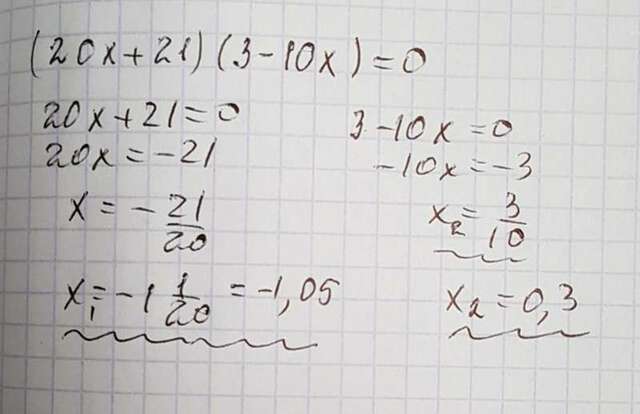 (20x+21)(3-10x)=0
20x+21=0
20x=-21
x=-21/20
x₁=-1 1/20=-1,05
3-10x=0
-10x=-3
x₂=3/10
x₂=0,3